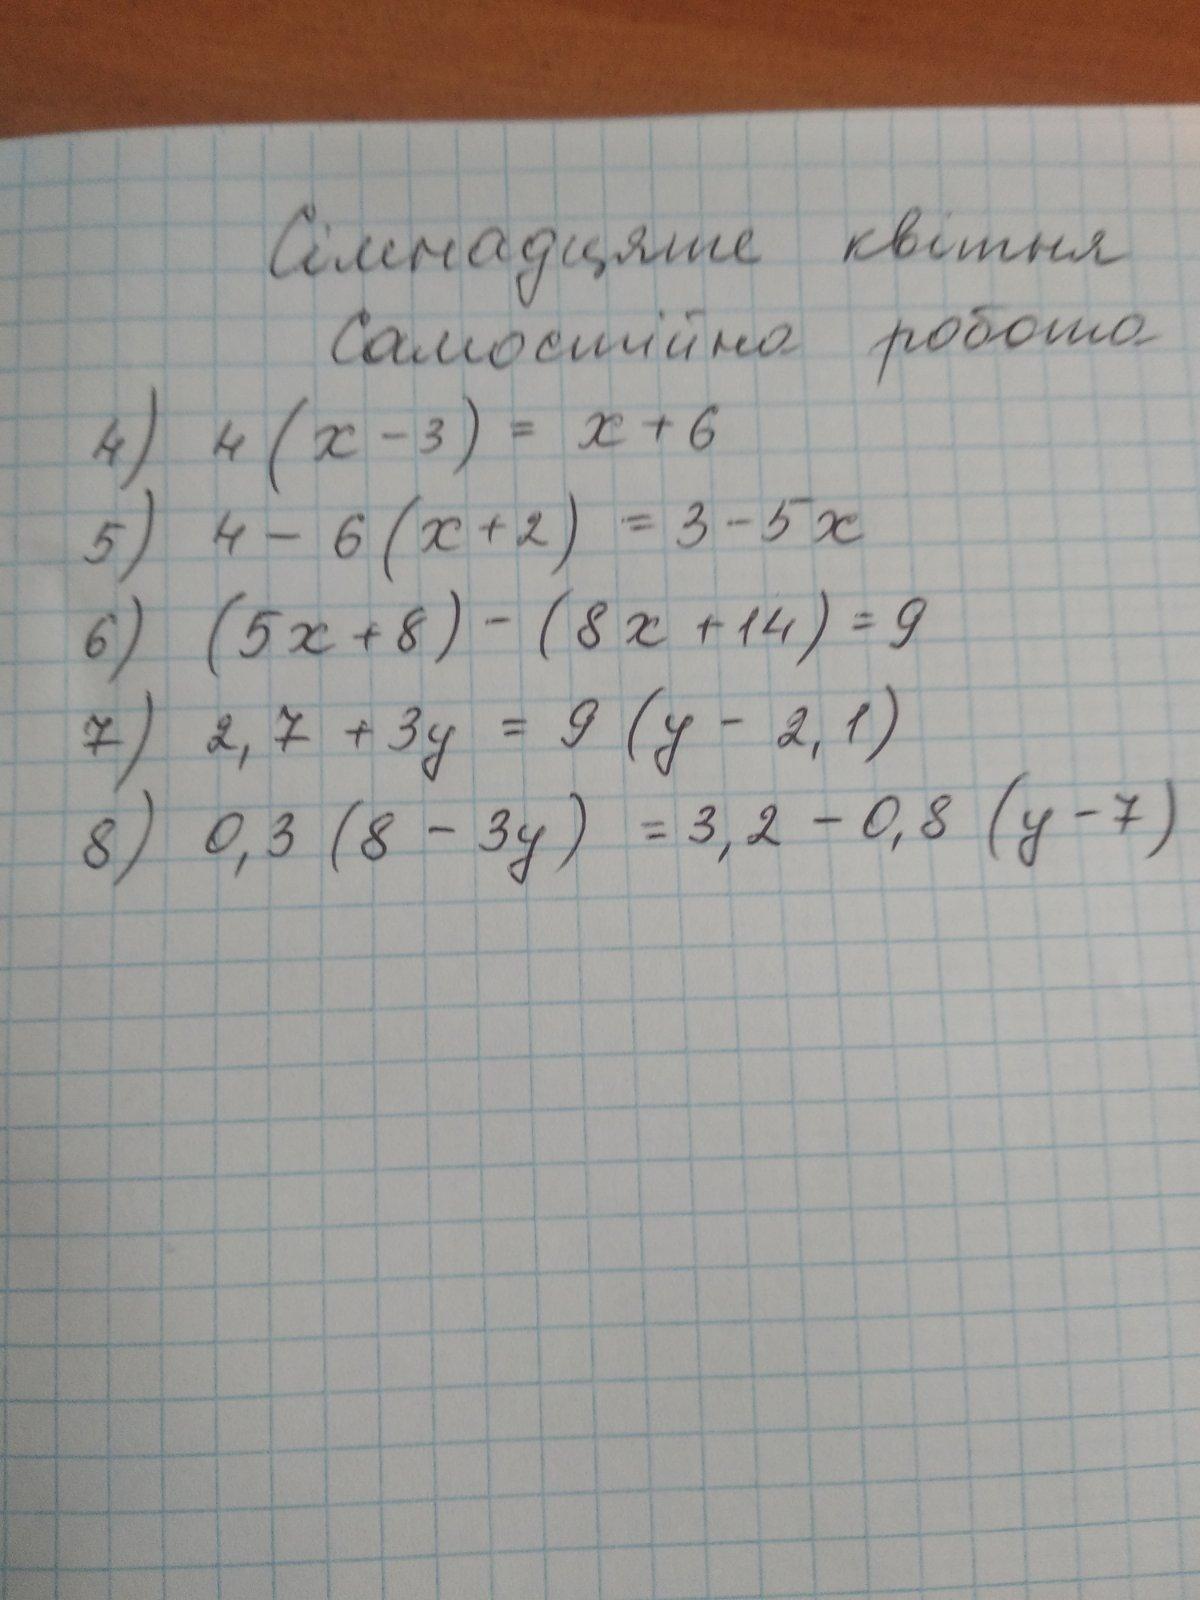 Сімнадцяте квітня
Самостійна робота
4) 4(x-3) = x+6
5) 4-6(x+2) = 3-5x
6) (5x+8)-(8x+14)=9
7) 2,7+3y = 9(y-2,1)
8) 0,3(8-3y) = 3,2-0,8(y-7)